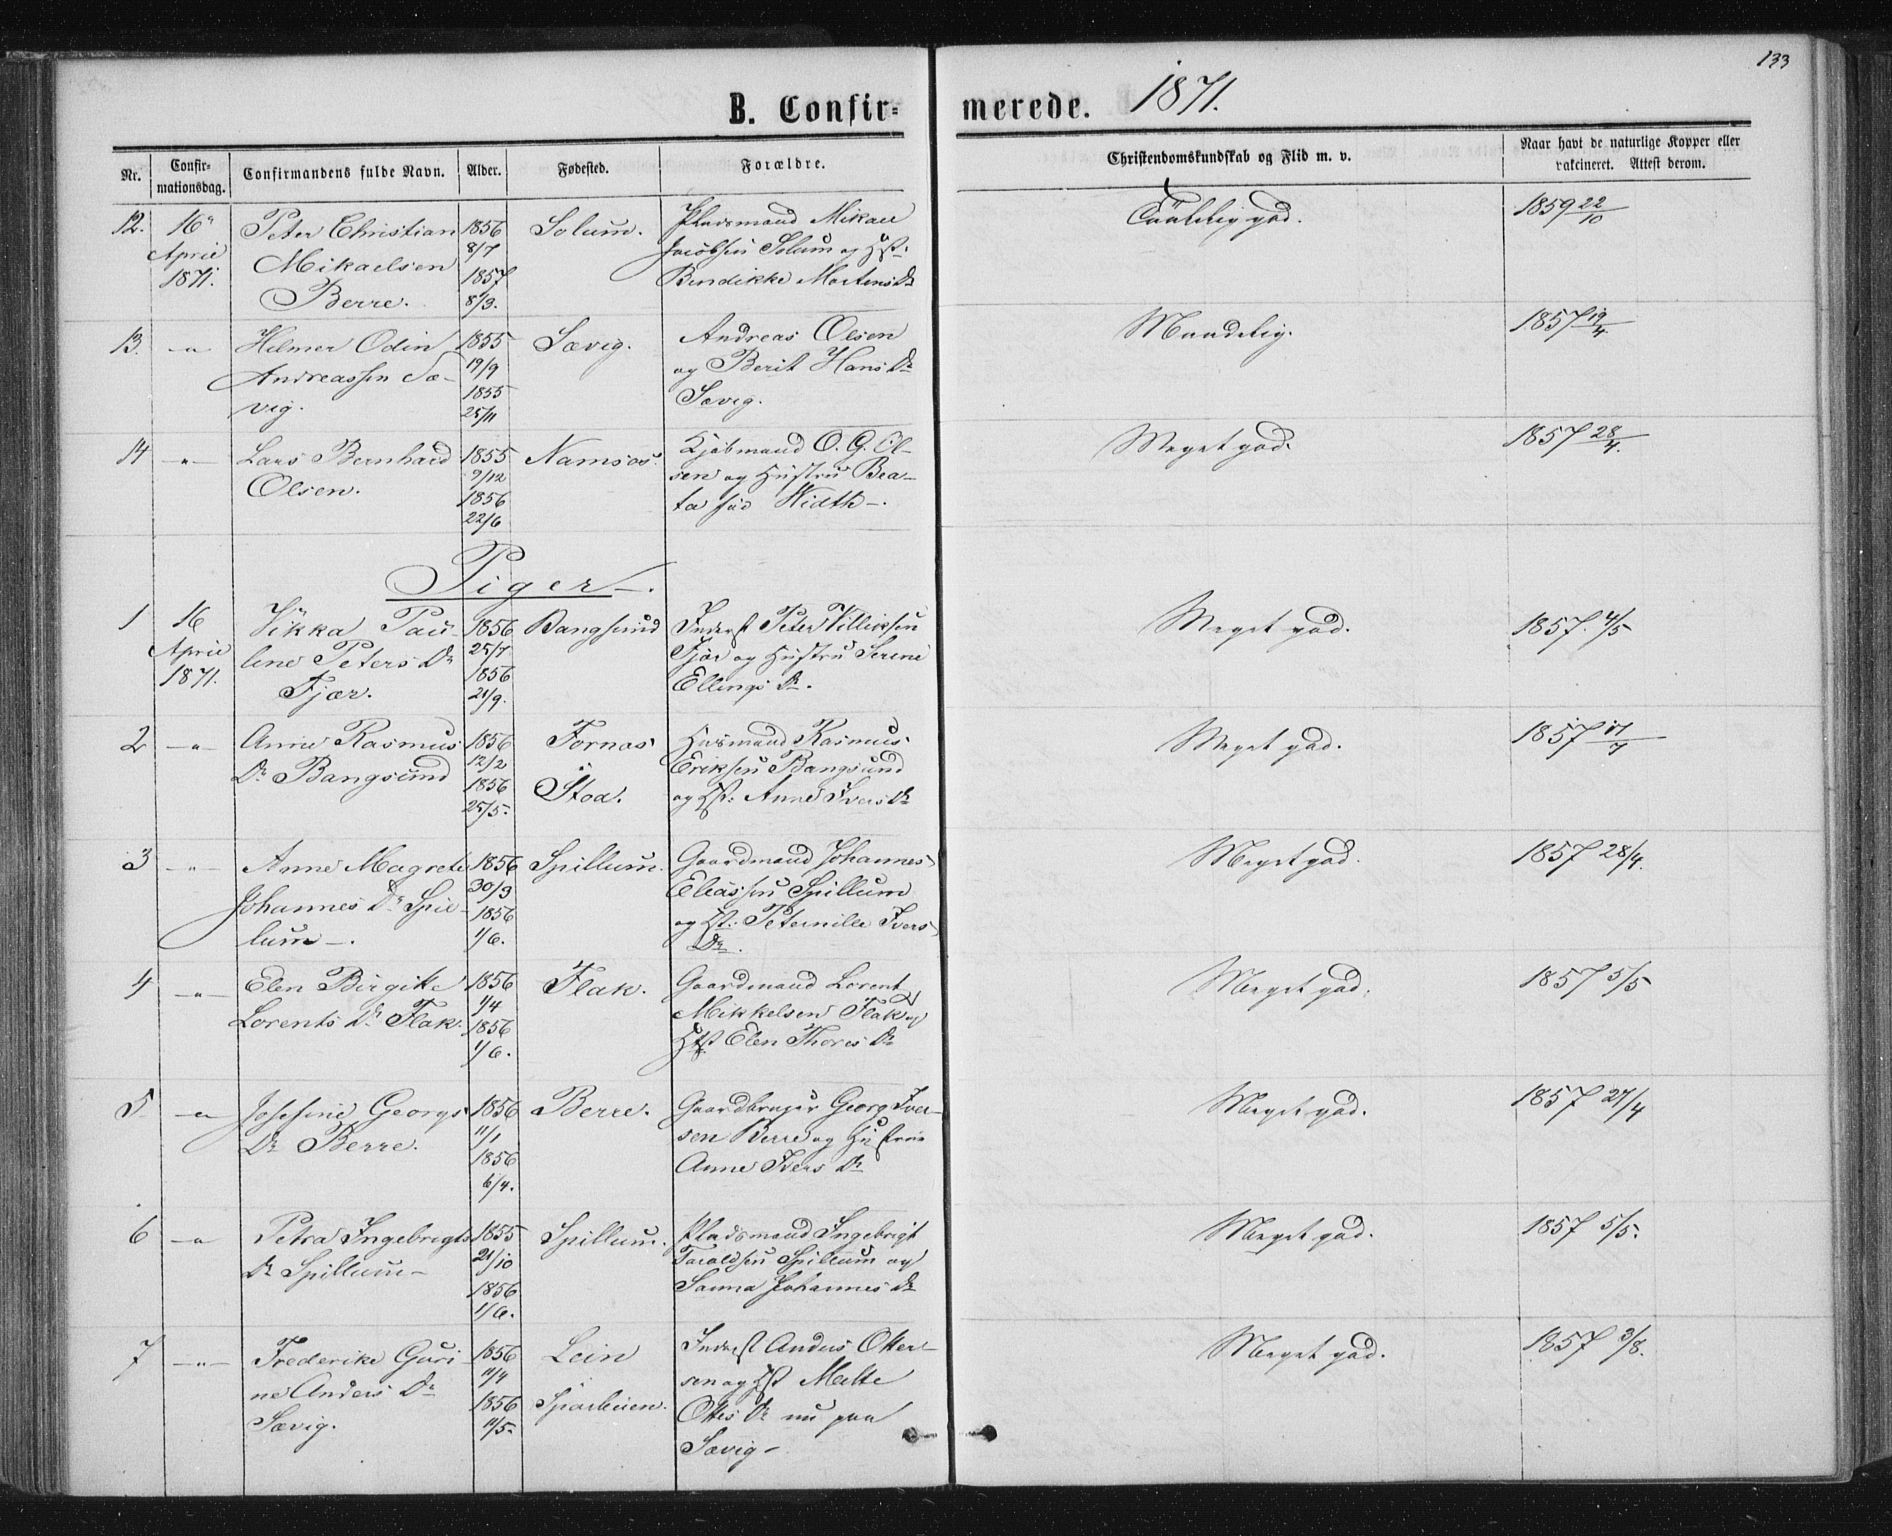 133
B. Confirmerede. 1871.
Nr. Confirmationsdag. Confirmandens fulde Navn. Alder. Fødested. Forældre. Christendomskundskab og Flid m. v. Naar havt de naturlige Kopper eller vakcineret. Attest derom.
12. 16 Peter Christian 1856 Solum. Pladsmand Mikael Taalelig god. 1859 22/10
April Mikaelsen 8/7 Jacobsen Solum og Hst:
1871. Berre. 1857 Bendikke Martens Dr
8/3.
13. -"- Helmer Odin 1855 Sævig. Andreas Olsen Maadelig. 1857 19/4
Andreassen Sæ- 19/9 og Berit Hans Dr
vig. 1855 Sævig.
25/11
14 -"- Lars Bernhard 1855 Namsos. Kjøbmand O. G. Ol- Meget god. 1857 28/4.
Olsen. 9/12 sen og Hustru Bea-
1856 ta fød Width-.
22/6
Piger-.
1 16 Vikka Pau- 1856 Bangsund Inderst Peter Villiksen Meget god. 1857. 4/5
April line Peters Dr 25/7 Fjær og Hustru Serine
1871. Fjær. 1856 Ellings Dr.
21/9.
2 -"- Anne Rasmus 1856 Fornes Husmand Rasmus Meget god. 1857 17/7
Dr Bangsund 12/2 Stod. Eriksen Bangsund
1856 og Hst: Anne Ivers Dr
25/5.
3 -"- Anne Magrete 1856 Spillum. Gaardmand Johannes Meget god. 1857 28/4.
Johannes Dr Spil- 30/3 Eliassen Spillum
lum-. 1856 og Hst: Peternille Ivers
1/6. Dr.
4 -"- Elen Birgitte 1856 Flak. Gaardmand Lorent Meget god. 1857 5/5
Lorents Dr Flak. 1/4 Mikkelsen Flak og
1856 Hst Elen Thores Dr
1/6.
5 -"- Josefine Georgs 1856 Berre. Gaardbruger Georg Iver- Meget god. 1857 27/4
Dr Berre. 11/1 sen Berre og Hustru
1856 Anne Ivers Dr
6/4.
6 -"- Petra Ingebrigts 1855 Spillum. Pladsmand Ingebrigt Meget god. 1857 5/5.
Dr Spillum- 21/10 Taraldsen Spillum og
1856 Sanna Johannes Dr
1/6.
7 -"- Frederike Guri- 1856 Lein Inderst Anders Otter- Meget god. 1857 3/8.
ne Anders Dr 11/4 Sparbuen. sen og Hst Malte
Sævig. 1856 Ottes Dr nu paa
11/5. Sævig-